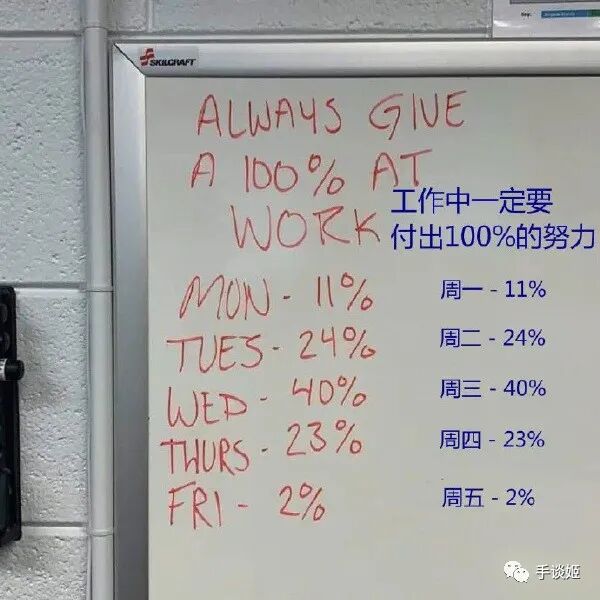 SKILCRAFT
ALWAYS GIVE
A 100% AT
WORK
工作中一定要
付出100%的努力
MON - 11%
周一 - 11%
TUES - 24%
周二 - 24%
WED - 40%
周三 - 40%
THURS - 23%
周四 - 23%
FRI - 2%
周五 - 2%
手谈姬